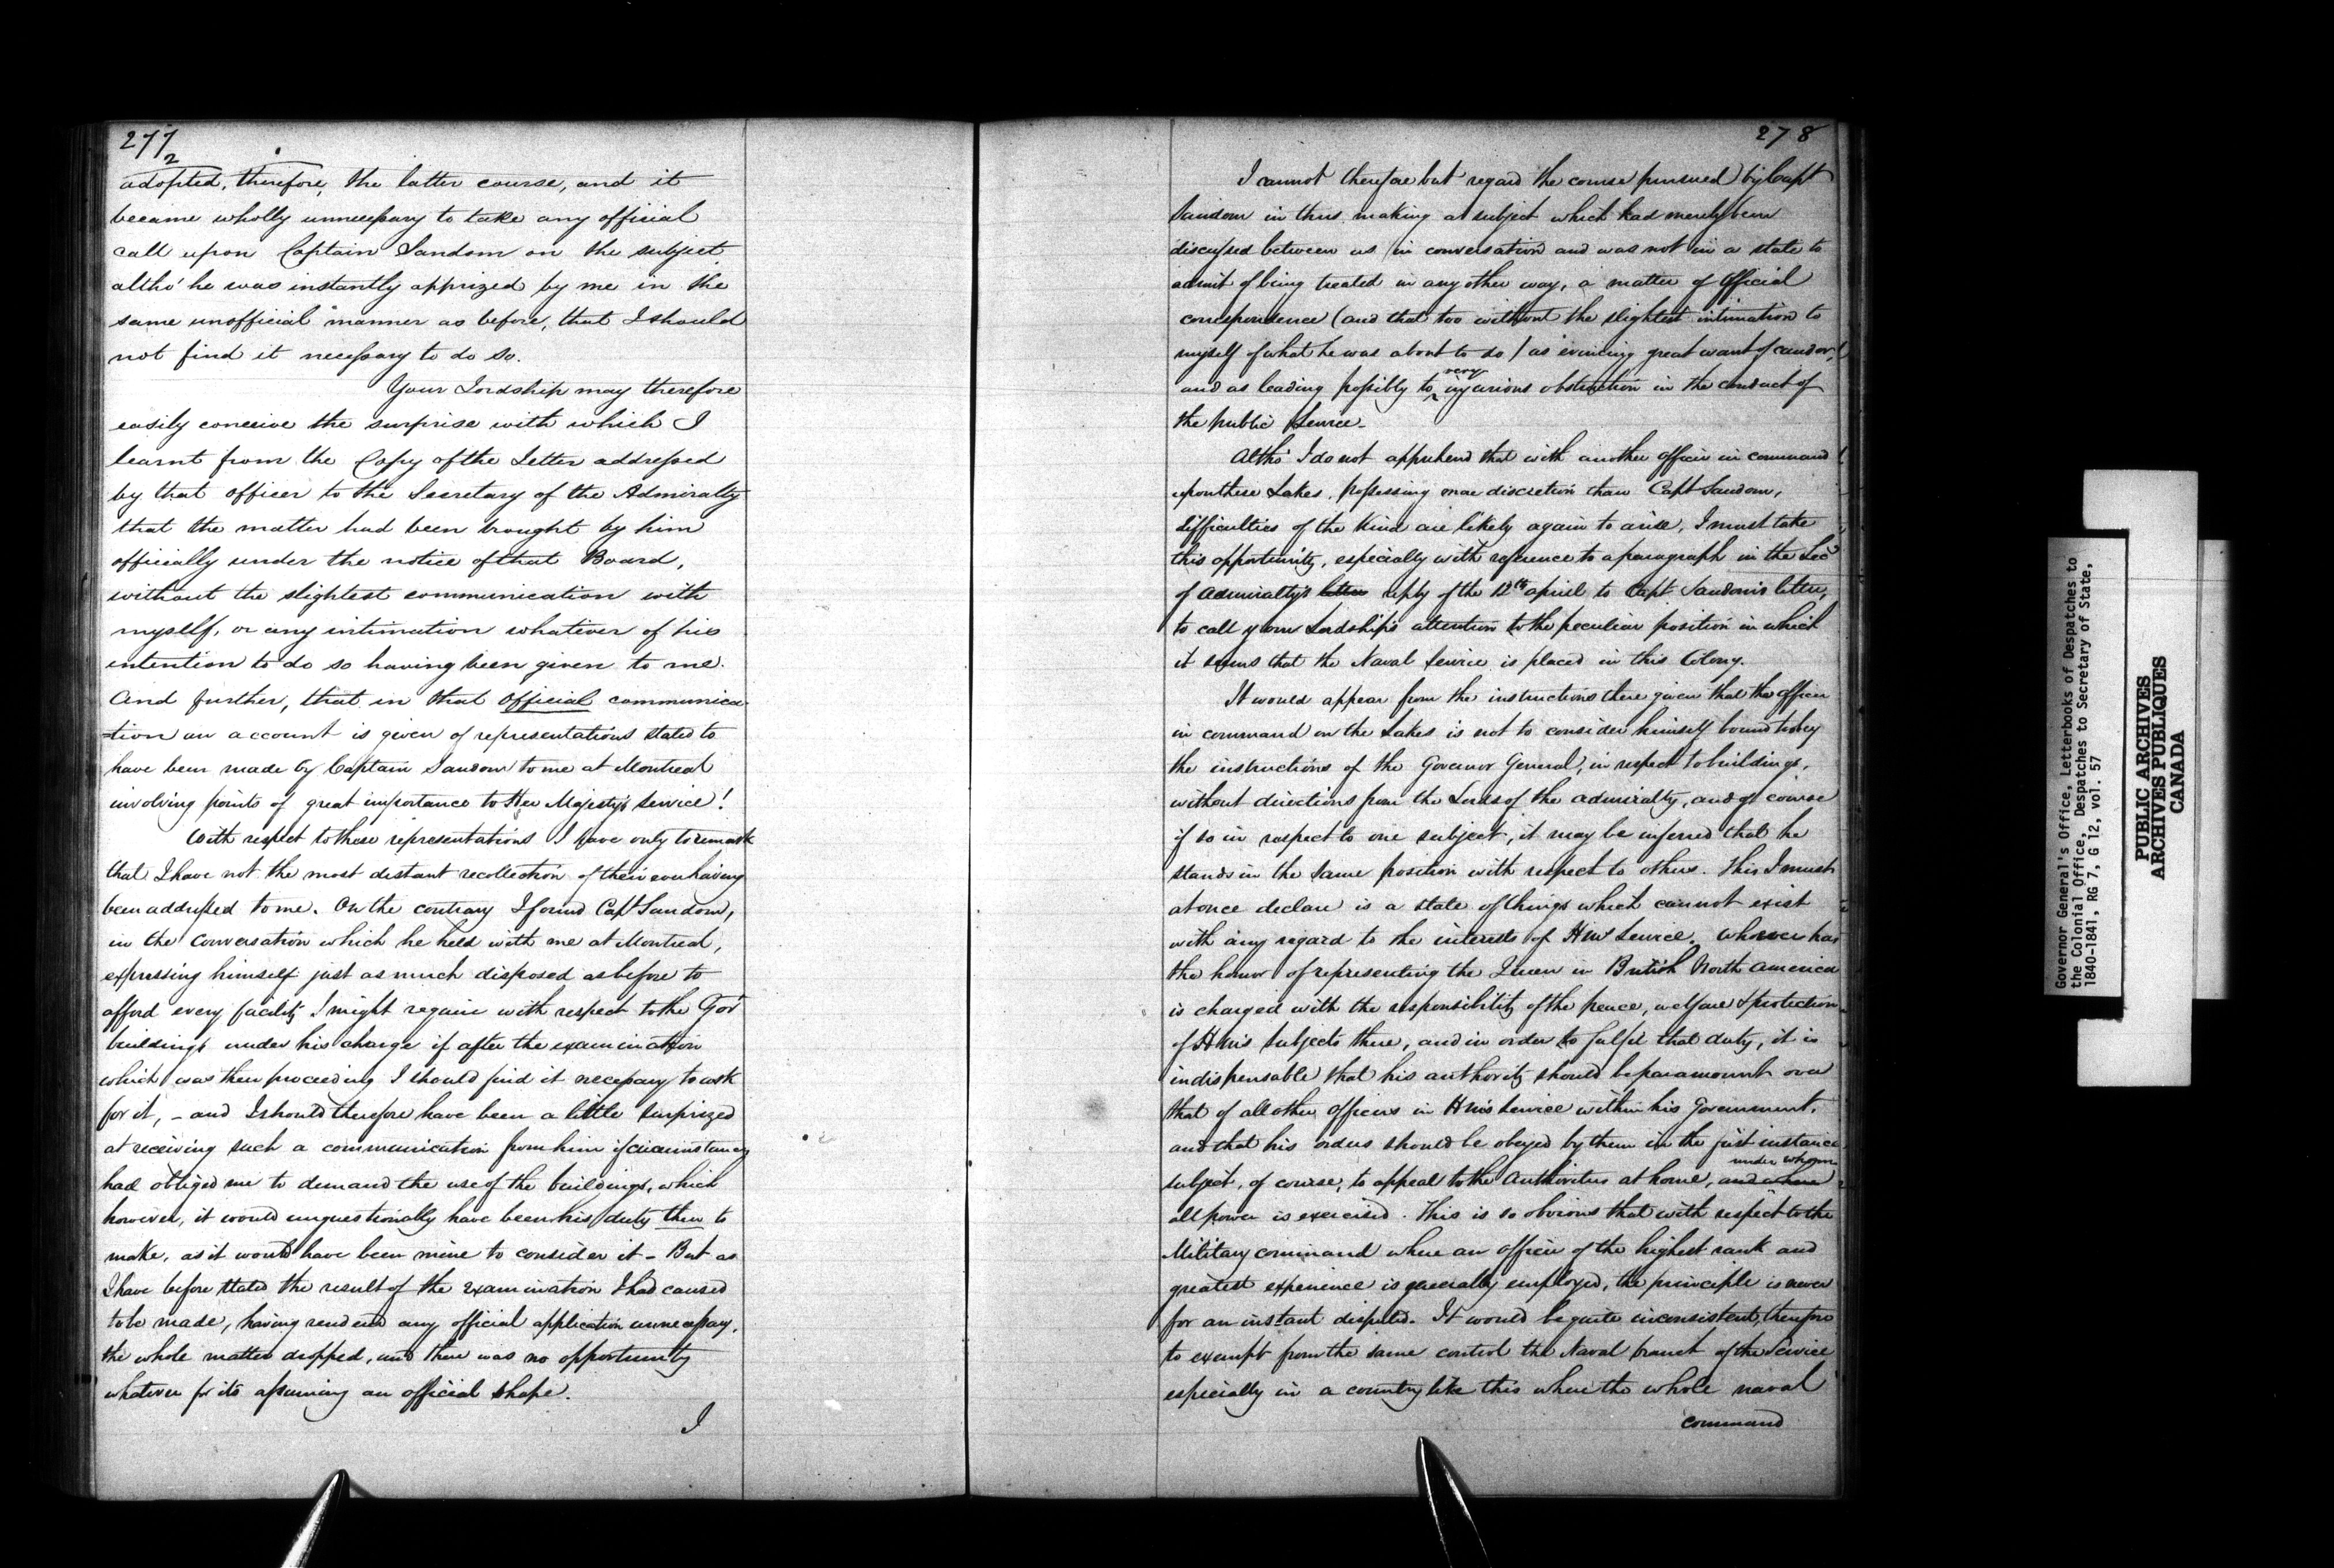 277
2
adopted, therefore, the latter course, and it
became wholly unnecessary to take any official
call upon Captain Sandom on the subject
altho' he was instantly apprized by me in the
same unofficial manner as before, that I should
not find it necessary to do so.
Your Lordship may therefore
easily conceive the surprise with which I
learnt from the Copy of the Letter addressed
by that officer to the Secretary of the Admiralty
that the matter had been brought by him
officially under the notice of that Board,
without the slightest communication with
myself, or any intimation whatever of his
intention to do so having been given to me.
And further, that in that official communica-
=tion an account is given of representations stated to
have been made by Captain Sandom to me at Montreal
involving points of great importance to Her Majesty's Service!
With respect to these representations I have only to remark
that I have not the most distant recollection of their ever having
been addressed to me. On the contrary I found Capt Sandom,
in the conversation which he held with me at Montreal,
expressing himself just as much disposed as before to
afford every facility I might require with respect to the Govt
buildings under his charge if after the examination
which was then proceeding I should find it necessary to ask
for it, – and I should therefore have been a little surprized
at receiving such a communication from him if circumstances
had obliged me to demand the use of the buildings, which
however, it would unquestionably have been his duty then to
make, as it would have been mine to consider it – But as
I have before stated the result of the examination I had caused
to be made, having rendered any official application unnecessary,
the whole matter dropped, and there was no opportunity
whatever for its assuming an official shape.
I
278
I cannot therefore but regard the course pursued by Capt
Sandom in thus making a subject which had merely been
discussed between us in conversation and was not in a state to
admit of being treated in any other way, a matter of Official
correspondence (and that too without the slightest intimation to
myself of what he was about to do) as evincing great want of candor,
and as leading possibly to very injurious obstruction in the conduct of
the public Service.
Altho' I do not apprehend that with another Officer in command
upon these Lakes, possessing more discretion than Capt Sandom,
difficulties of the kind are likely again to arise, I must take
this opportunity, especially with reference to a paragraph in the Secy
of Admiralty's letter reply of the 12th April to Capt Sandom's letter,
to call your Lordship's attention to the peculiar position in which
it seems that the Naval Service is placed in this Colony.
It would appear from the instructions there given that the officer
in command on the Lakes is not to consider himself bound to obey
the instructions of the Governor General, in respect to buildings,
without directions from the Lords of the Admiralty, and of course
if so in respect to one subject, it may be inferred that he
stands in the same position with respect to others. This I must
at once declare is a state of things which cannot exist
with any regard to the interests of H M's Service. Whoever has
the honor of representing the Queen in British North America
is charged with the responsibility of the peace, welfare & protection
of H M's Subjects there, and in order to fulfil that duty, it is
indispensable that his authority should be paramount over
that of all other officers in H M's Service within his Government,
and that his orders should be obeyed by them in the first instance
under whom
subject, of course, to appeal to the Authorities at home, and where
all power is exercised. This is so obvious that with respect to the
Military command where an officer of the highest rank and
greatest experience is generally employed, the principle is never
for an instant disputed. It would be quite inconsistent, therefore
to exempt from the same control the Naval branch of the Service
especially in a country like this where the whole naval
command
Governor General's Office, Letterbooks of Despatches to
the Colonial Office, Despatches to Secretary of State,
1840-1841, RG 7, G 12, vol. 57
PUBLIC ARCHIVES
ARCHIVES PUBLIQUES
CANADA